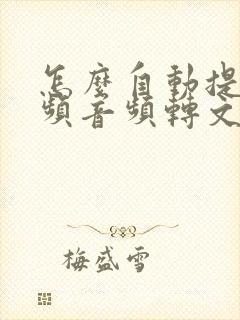 怎麼自動提
頻音頻轉文
梅盛雪